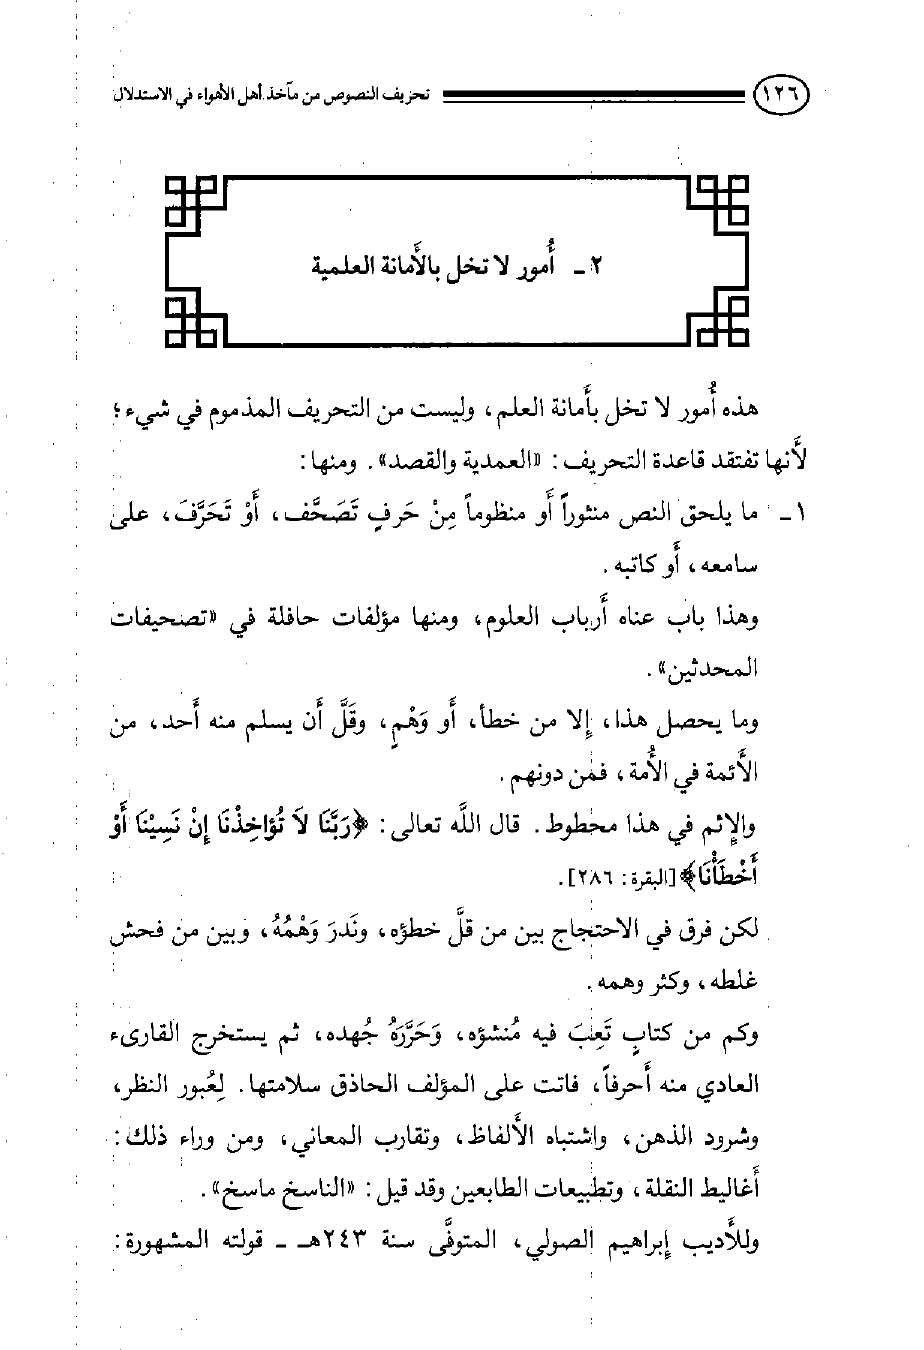 ١٢٦ تحريف النصوص من مآخذ أهل الأهواء في الاستدلال
٢ ـ أُمور لا تخل بالأَمانة العلمية
هذه أُمور لا تخل بأَمانة العلم، وليست من التحريف المذموم في شيء؛
لأَنها تفتقد قاعدة التحريف: «العمدية والقصد». ومنها:
١ ـ ما يلحق النص منثوراً أَو منظوماً مِنْ حَرفٍ تَصَحَّف، أَوْ تَحَرَّفَ، على
سامعه، أَو كاتبه.
وهذا باب عناه أَرباب العلوم، ومنها مؤلفات حافلة في «تصحيفات
المحدثين».
وما يحصل هذا، إِلا من خطأ، أَو وَهْمٍ، وقَلَّ أَن يسلم منه أَحد، من
الأَئمة في الأُمة، فمن دونهم.
والإِثم في هذا محطوط. قال اللَّه تعالى: ﴿رَبَّنَا لاَ تُؤَاخِذْنَا إِنْ نَسِيْنَا أَوْ
أَخْطَأْنَا﴾ [البقرة: ٢٨٦].
لكن فرق في الاحتجاج بين من قلَّ خطؤه، ونَدرَ وَهْمُهُ، وبين من فحش
غلطه، وكثر وهمه.
وكم من كتابٍ تَعِبَ فيه مُنشؤه، وَحَرَّرَهُ جُهده، ثم يستخرج القارىء
العادي منه أَحرفاً، فاتت على المؤلف الحاذق سلامتها. لِعُبور النظر،
وشرود الذهن، واشتباه الأَلفاظ، وتقارب المعاني، ومن وراء ذلك:
أَغاليط النقلة، وتطبيعات الطابعين وقد قيل: «الناسخ ماسخ».
وللأَديب إِبراهيم الصولي، المتوفَّى سنة ٢٤٣هـ ـ قولته المشهورة: